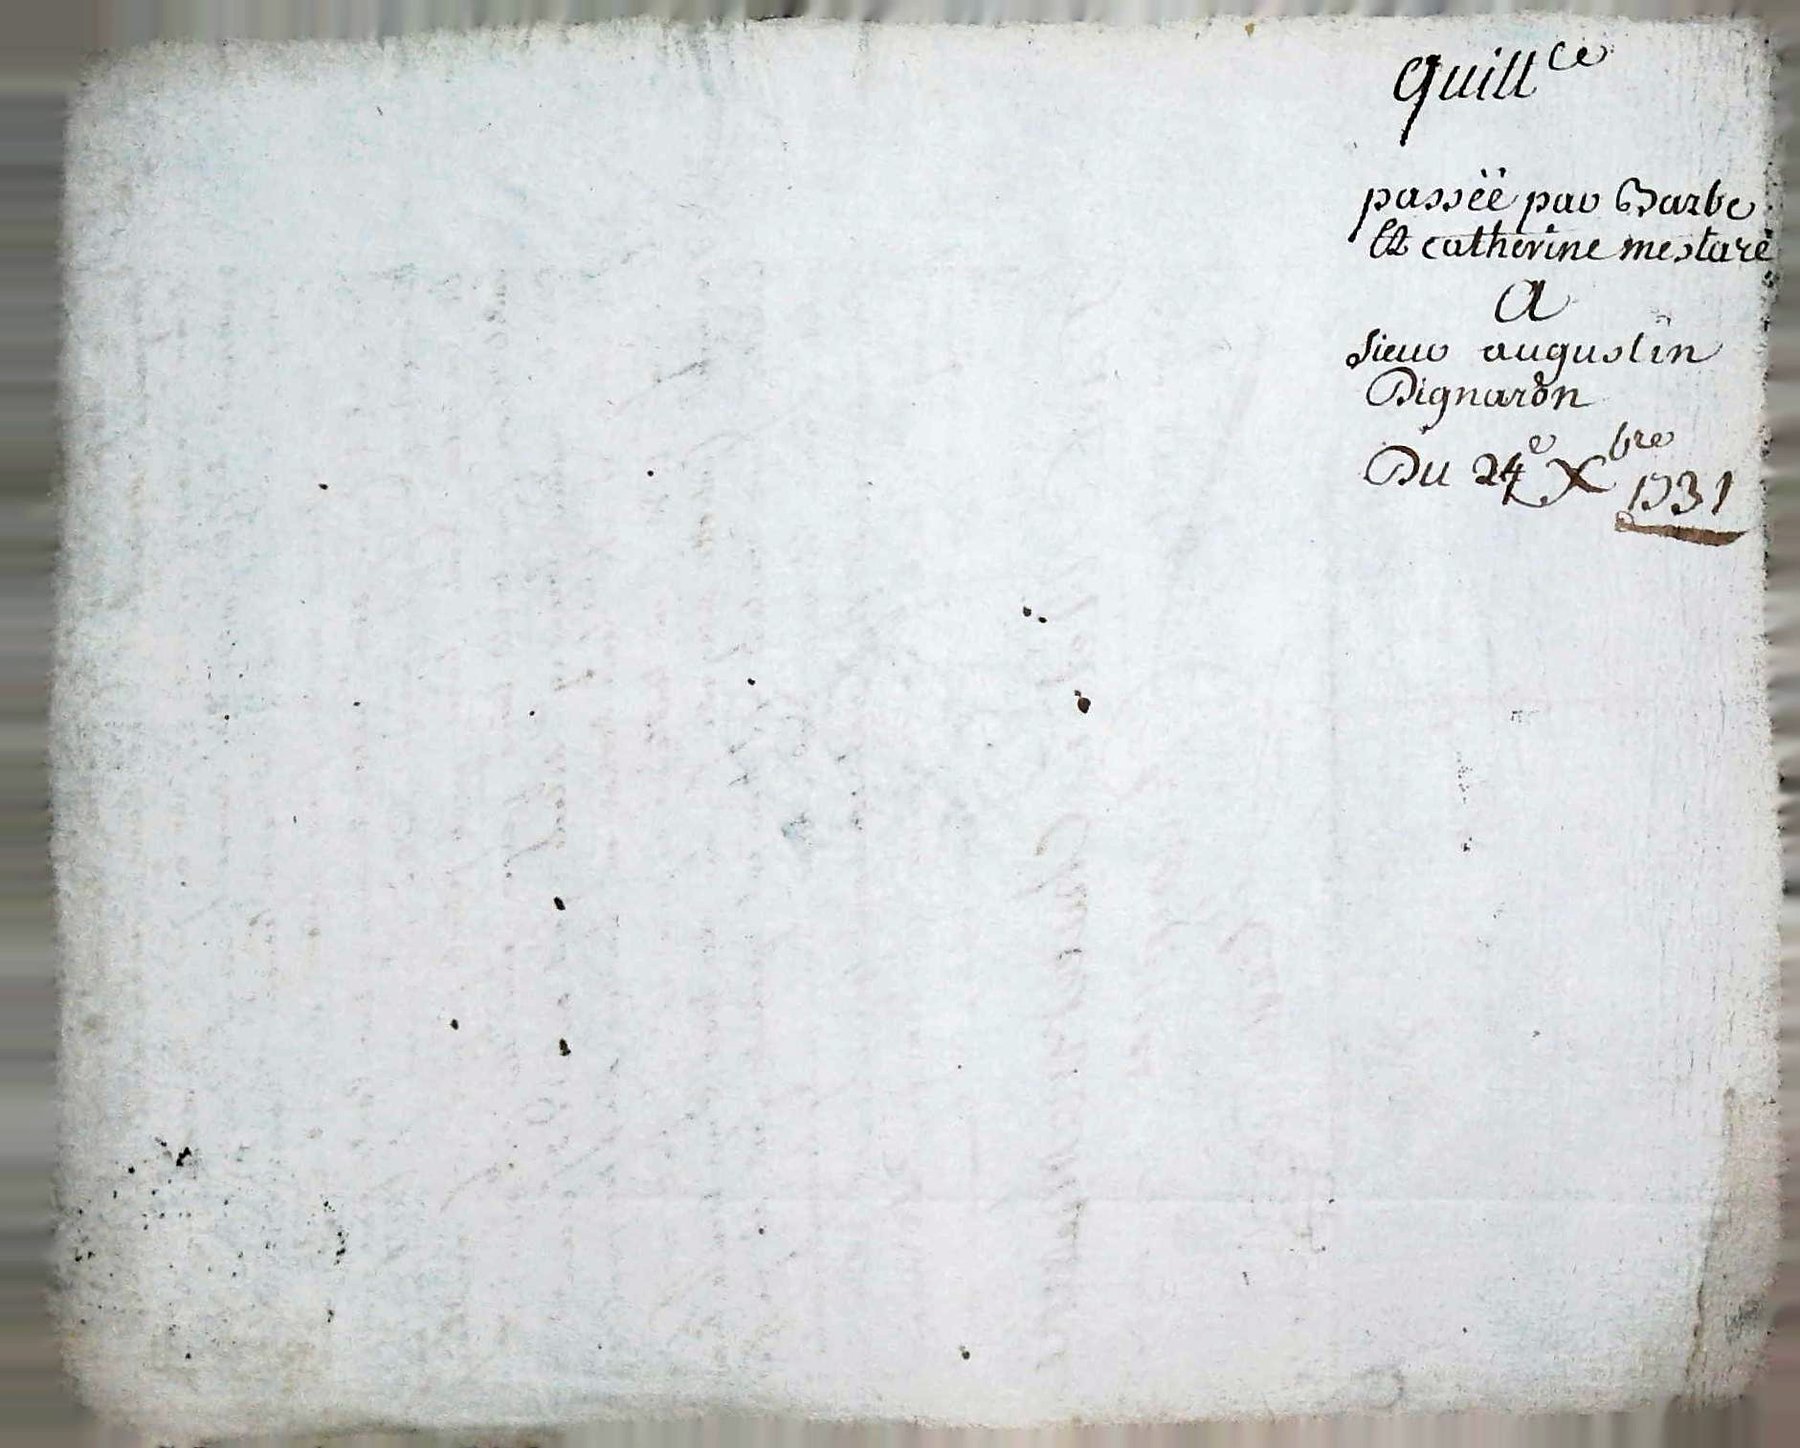 Quittce
passëë par Barbe
Et catherine mestare
A
sieur augustin
Dignaron
Du 24e Xbre 1731